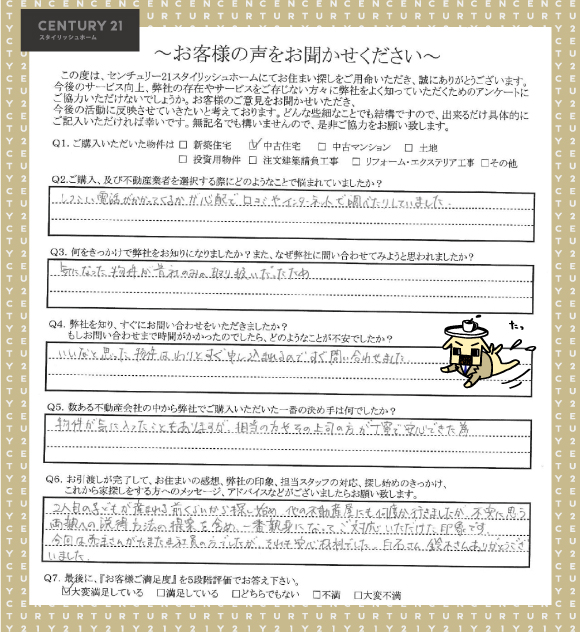 CENTURY 21
スタイリッシュホーム
～お客様の声をお聞かせください～
この度は、センチュリー21スタイリッシュホームにてお住まい探しをご用命いただき、誠にありがとうございます。
今後のサービス向上、弊社の存在やサービスをご存じない方々に弊社をよく知っていただくためのアンケートに
ご協力いただけないでしょうか。お客様のご意見をお聞かせいただき、
今後の活動に反映させていきたいと考えております。どんな些細なことでも結構ですので、出来るだけ具体的に
ご記入いただければ幸いです。無記名でも構いませんので、是非ご協力をお願い致します。
Q1. ご購入いただいた物件は □ 新築住宅 ☑ 中古住宅 □ 中古マンション □ 土地
□ 投資用物件 □ 注文建築請負工事 □ リフォーム・エクステリア工事 □その他
Q2.ご購入、及び不動産業者を選択する際にどのようなことで悩まれていましたか?
しつこい電話がかかってくるかが心配で口コミやインターネットで調べたりしていました。
Q3. 何をきっかけで弊社をお知りになりましたか?また、なぜ弊社に問い合わせてみようと思われましたか?
気になった物件が貴社のみの取り扱いだったため
Q4. 弊社を知り、すぐにお問い合わせをいただきましたか?
もしお問い合わせまで時間がかかったのでしたら、どのようなことが不安でしたか?
いいなと思った物件はわりとすぐ申し込まれるのですぐ問い合わせました
たっ
Q5. 数ある不動産会社の中から弊社でご購入いただいた一番の決め手は何でしたか?
物件が気に入ったこともありますが、担当の方やその上司の方が丁寧で安心できた為
Q6. お引渡しが完了して、お住まいの感想、弊社の印象、担当スタッフの対応、探し始めのきっかけ、
これから家探しをする方へのメッセージ、アドバイスなどがございましたらお願い致します。
2人目の子どもが産まれる前くらいから探し始め、他の不動産屋にも何度か行きましたが、不安に思う
両親への説明方法の提案も含め、一番親身になってご対応いただけた印象です。
今回は売主さんがたまたま社員の方でしたが、それも安心材料でした。白石さん、鈴木さんありがとうござ
いました。
Q7. 最後に、『お客様ご満足度』を5段階評価でお答え下さい。
☑大変満足している □満足している □どちらでもない □不満 □大変不満